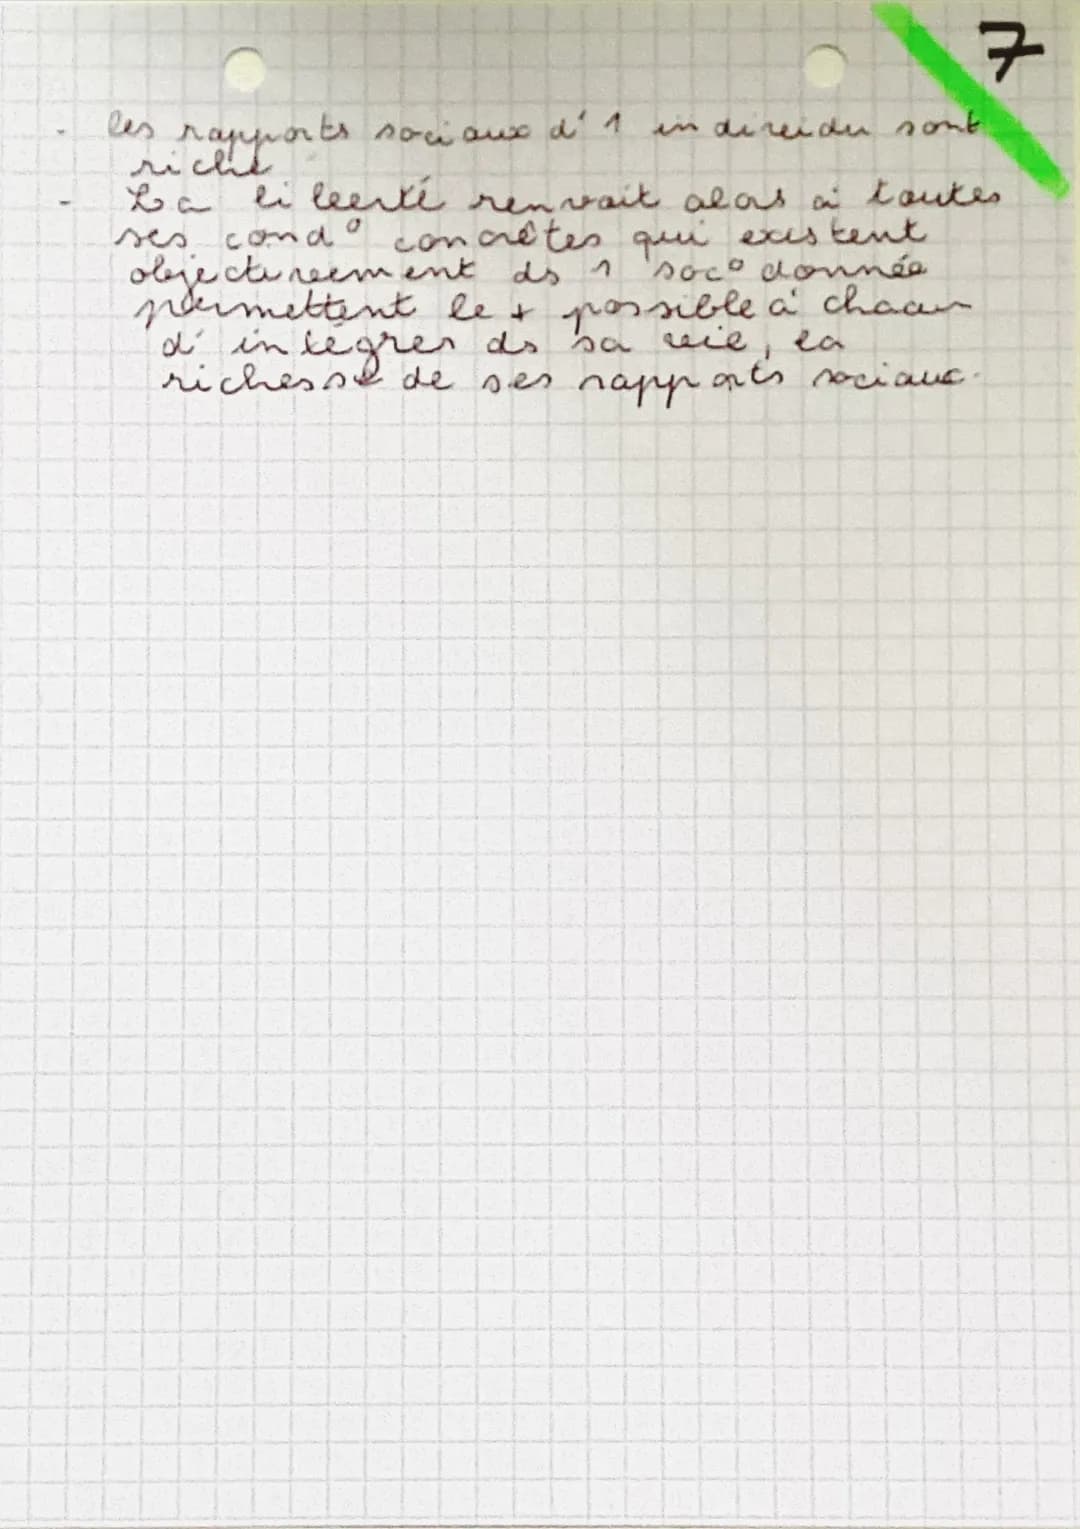 7
- les rapports sociaux d'1 individu sont
riche
- La liberté renvoit alors à toutes
ses cond° concrêtes qui existent
objectivement ds 1 soc° donnée
permettent le + possible à chacun
d'intégrer ds sa vie, la
richesse de ses rapports sociaux.